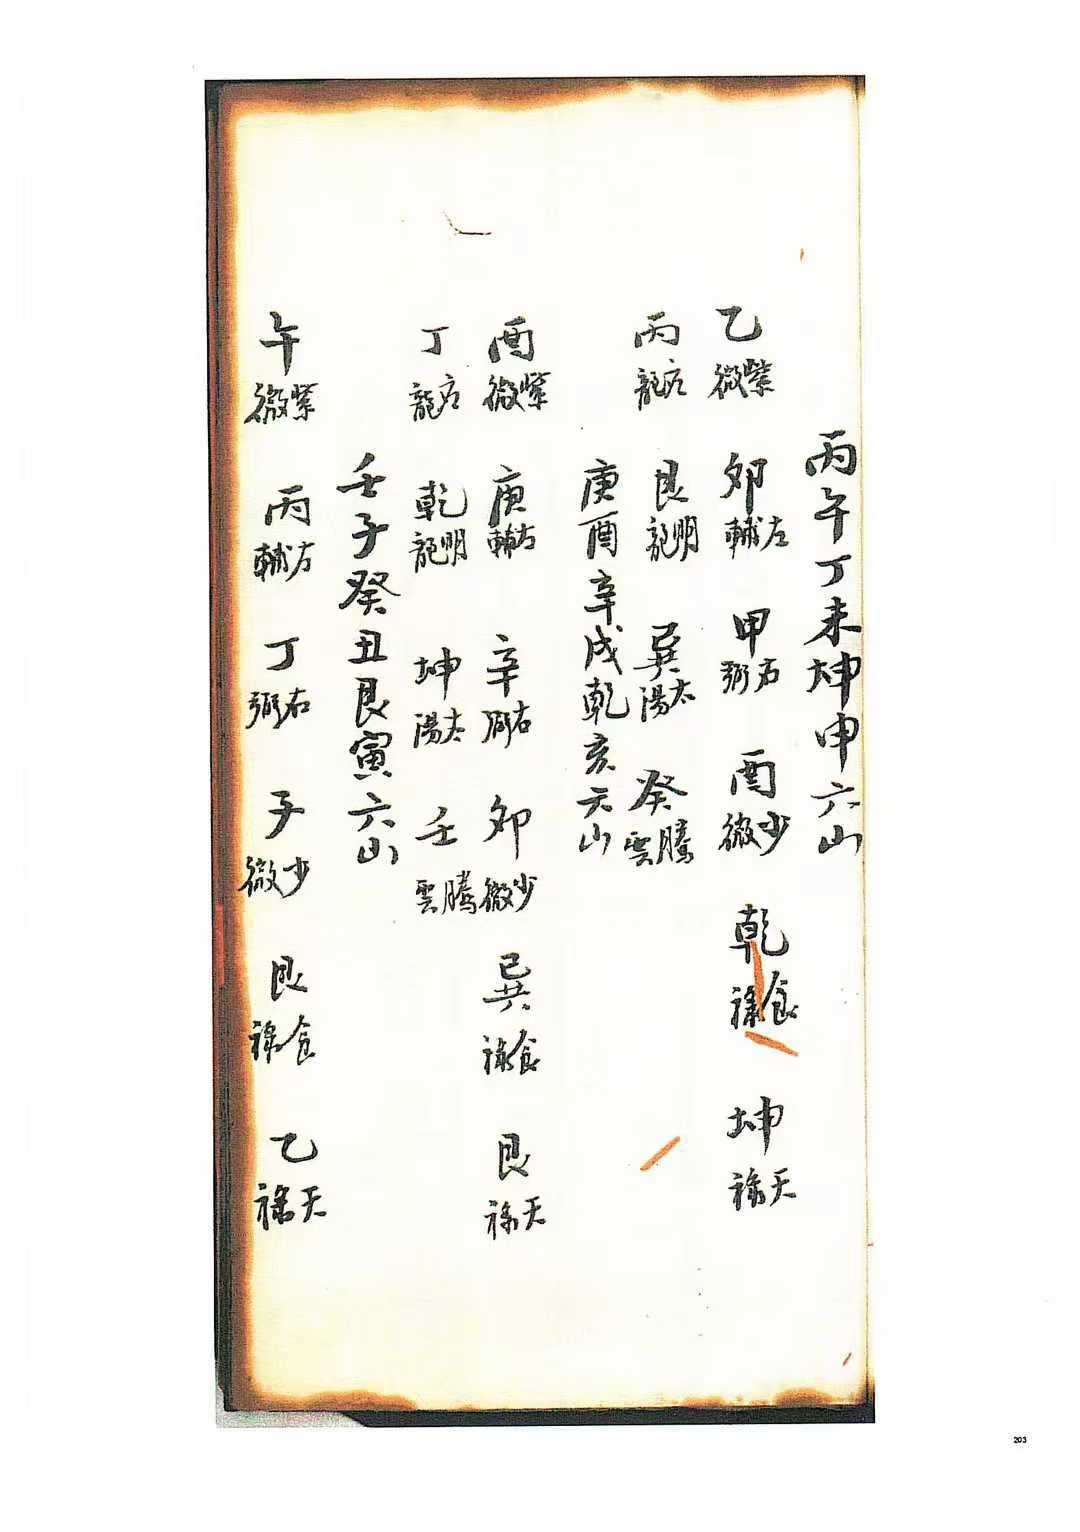 丙午丁未坤申六山
乙紫微 卯左輔 甲右弼 酉少微 乾食祿 坤天祿
丙龍 艮明龍 巽太陽 癸騰雲
庚酉辛戌乾亥六山
酉紫微 庚右輔 辛右弼 卯少微 巽食祿 艮天祿
丁龍 乾明龍 坤太陽 壬騰雲
壬子癸丑艮寅六山
午紫微 丙輔 丁右弼 子少微 艮食祿 乙天祿
203